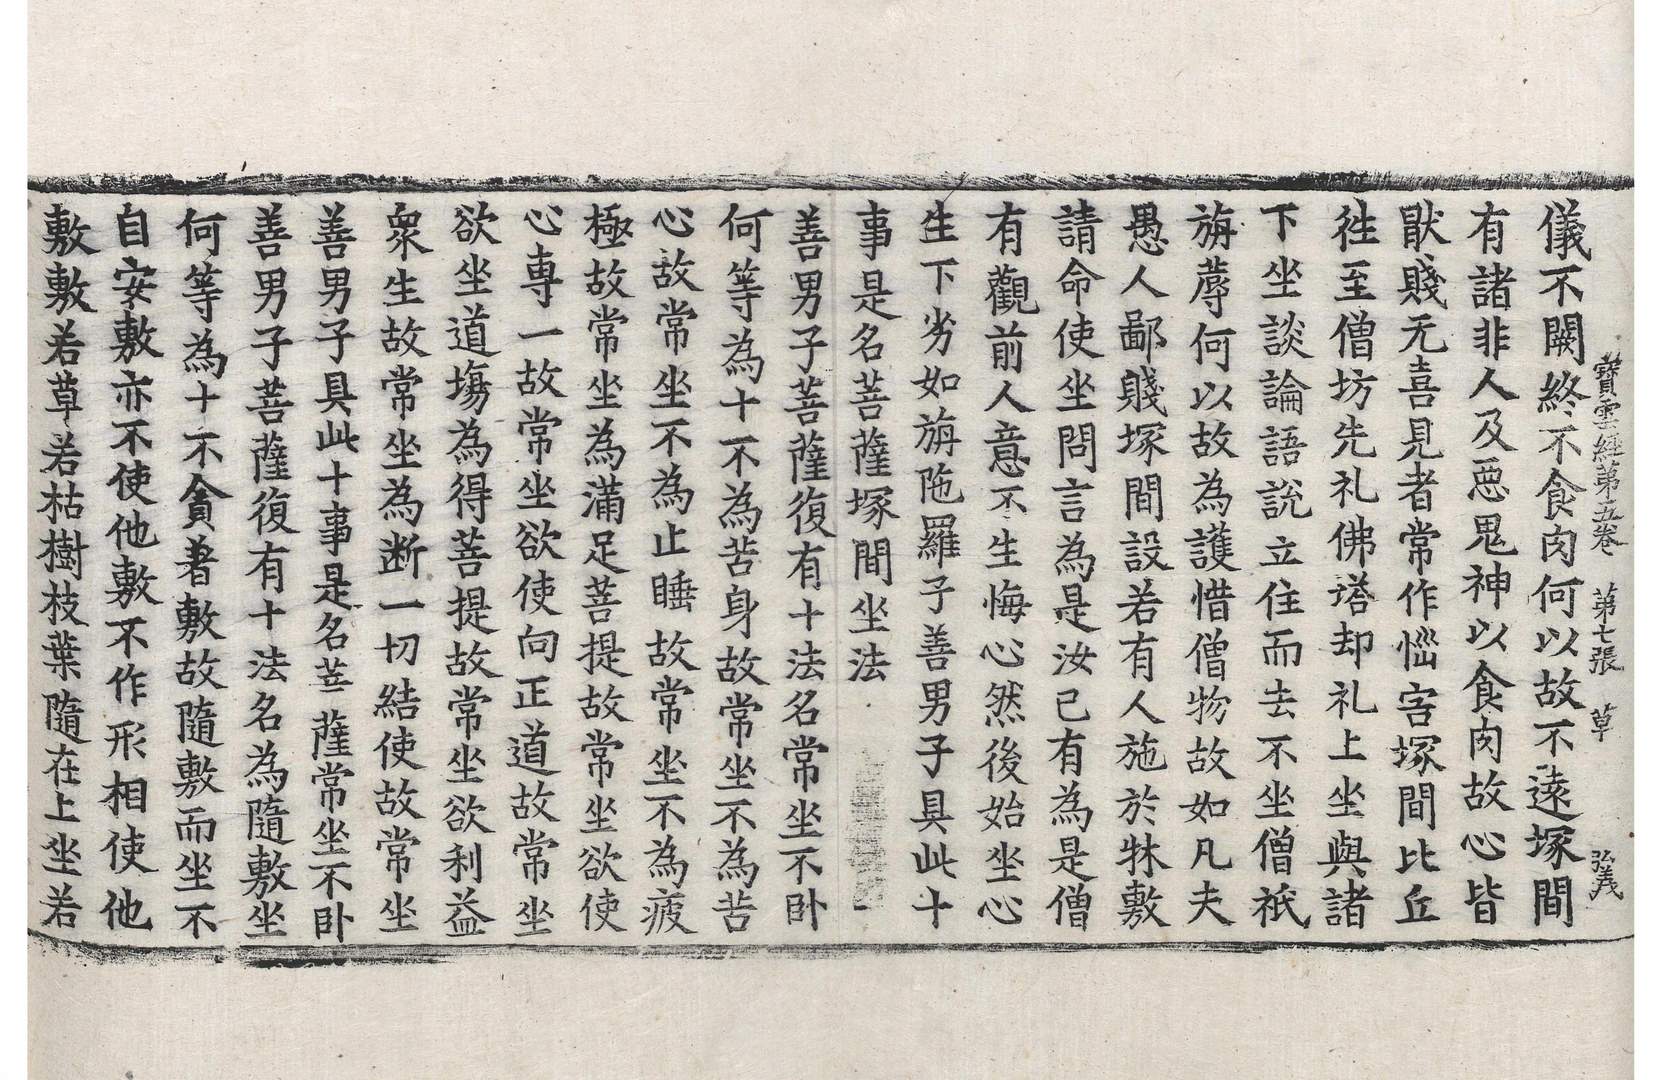 寶雲經第五卷　第七張　草　弘義
儀不闕終不食肉何以故不遠塚間
有諸非人及惡鬼神以食肉故心皆
猒賤无喜見者常作惱害塚間比丘
徃至僧坊先礼佛塔却礼上坐與諸
下坐談論語說立住而去不坐僧祇
旃蓐何以故為護惜僧物故如凡夫
愚人鄙賤塚間設若有人施於牀敷
請命使坐問言為是汝已有為是僧
有觀前人意不生悔心然後始坐心
生下劣如旃陁羅子善男子具此十
事是名菩薩塚間坐法
善男子菩薩復有十法名常坐不卧
何等為十不為苦身故常坐不為苦
心故常坐不為止睡故常坐不為疲
極故常坐為滿足菩提故常坐欲使
心専一故常坐欲使向正道故常坐
欲坐道塲為得菩提故常坐欲利益
衆生故常坐為断一切結使故常坐
善男子具此十事是名菩薩常坐不卧
善男子菩薩復有十法名為隨敷坐
何等為十不貪著敷故隨敷而坐不
自安敷亦不使他敷不作形相使他
敷敷若草若枯樹枝葉隨在上坐若